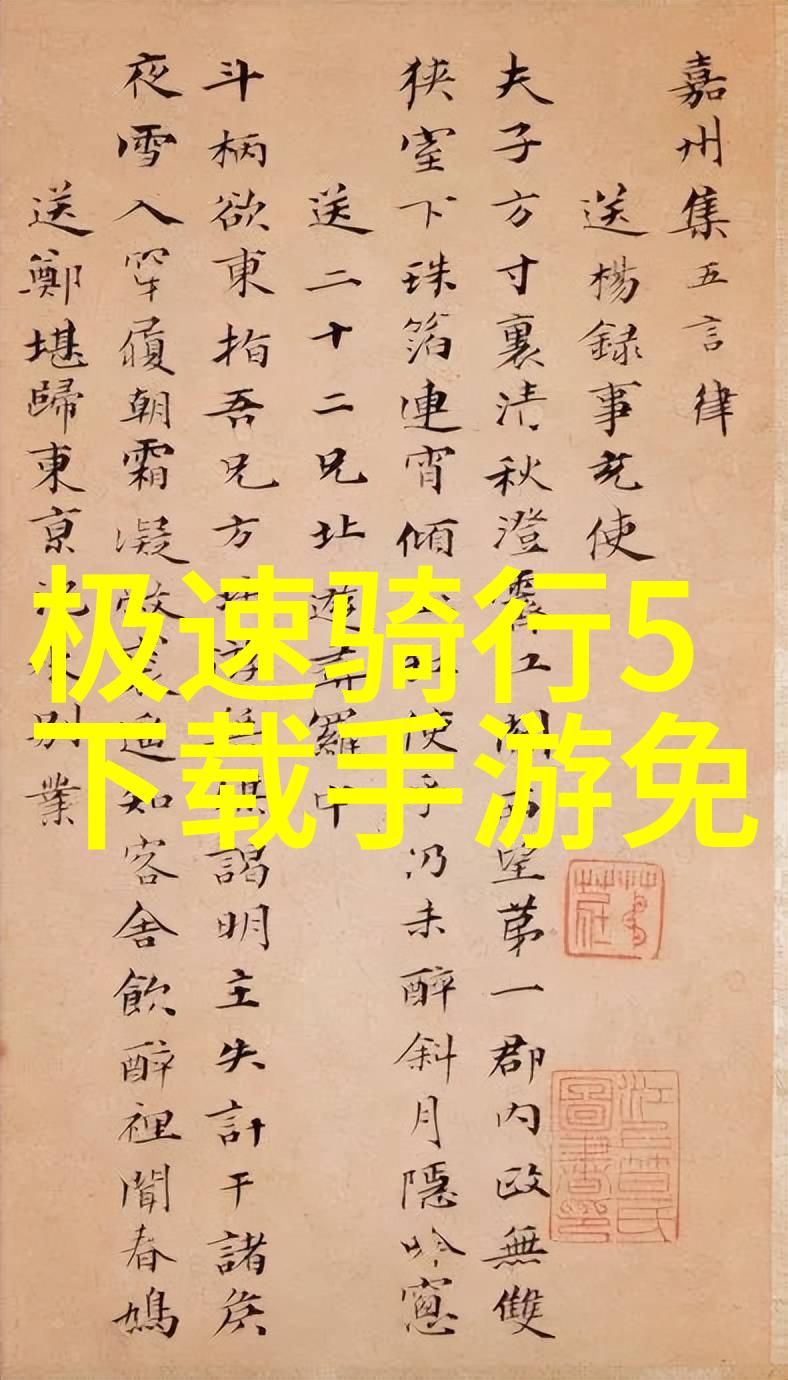 嘉州集五言律
送楊録事充使
夫子方寸裏清秋澄霽江關西望第一郡内政無雙
狹室下珠箔連宵傾 使乎仍未醉斜月隱吟窓
送二十二兄北遊尋羅中
斗柄欲東指吾兄方 謁明主失計干諸侯
夜雪入穿履朝霜凝敝裘遥知客舍飲醉裡聞春鳩
送鄭堪歸東京 別業
极速骑行5
下载手游免